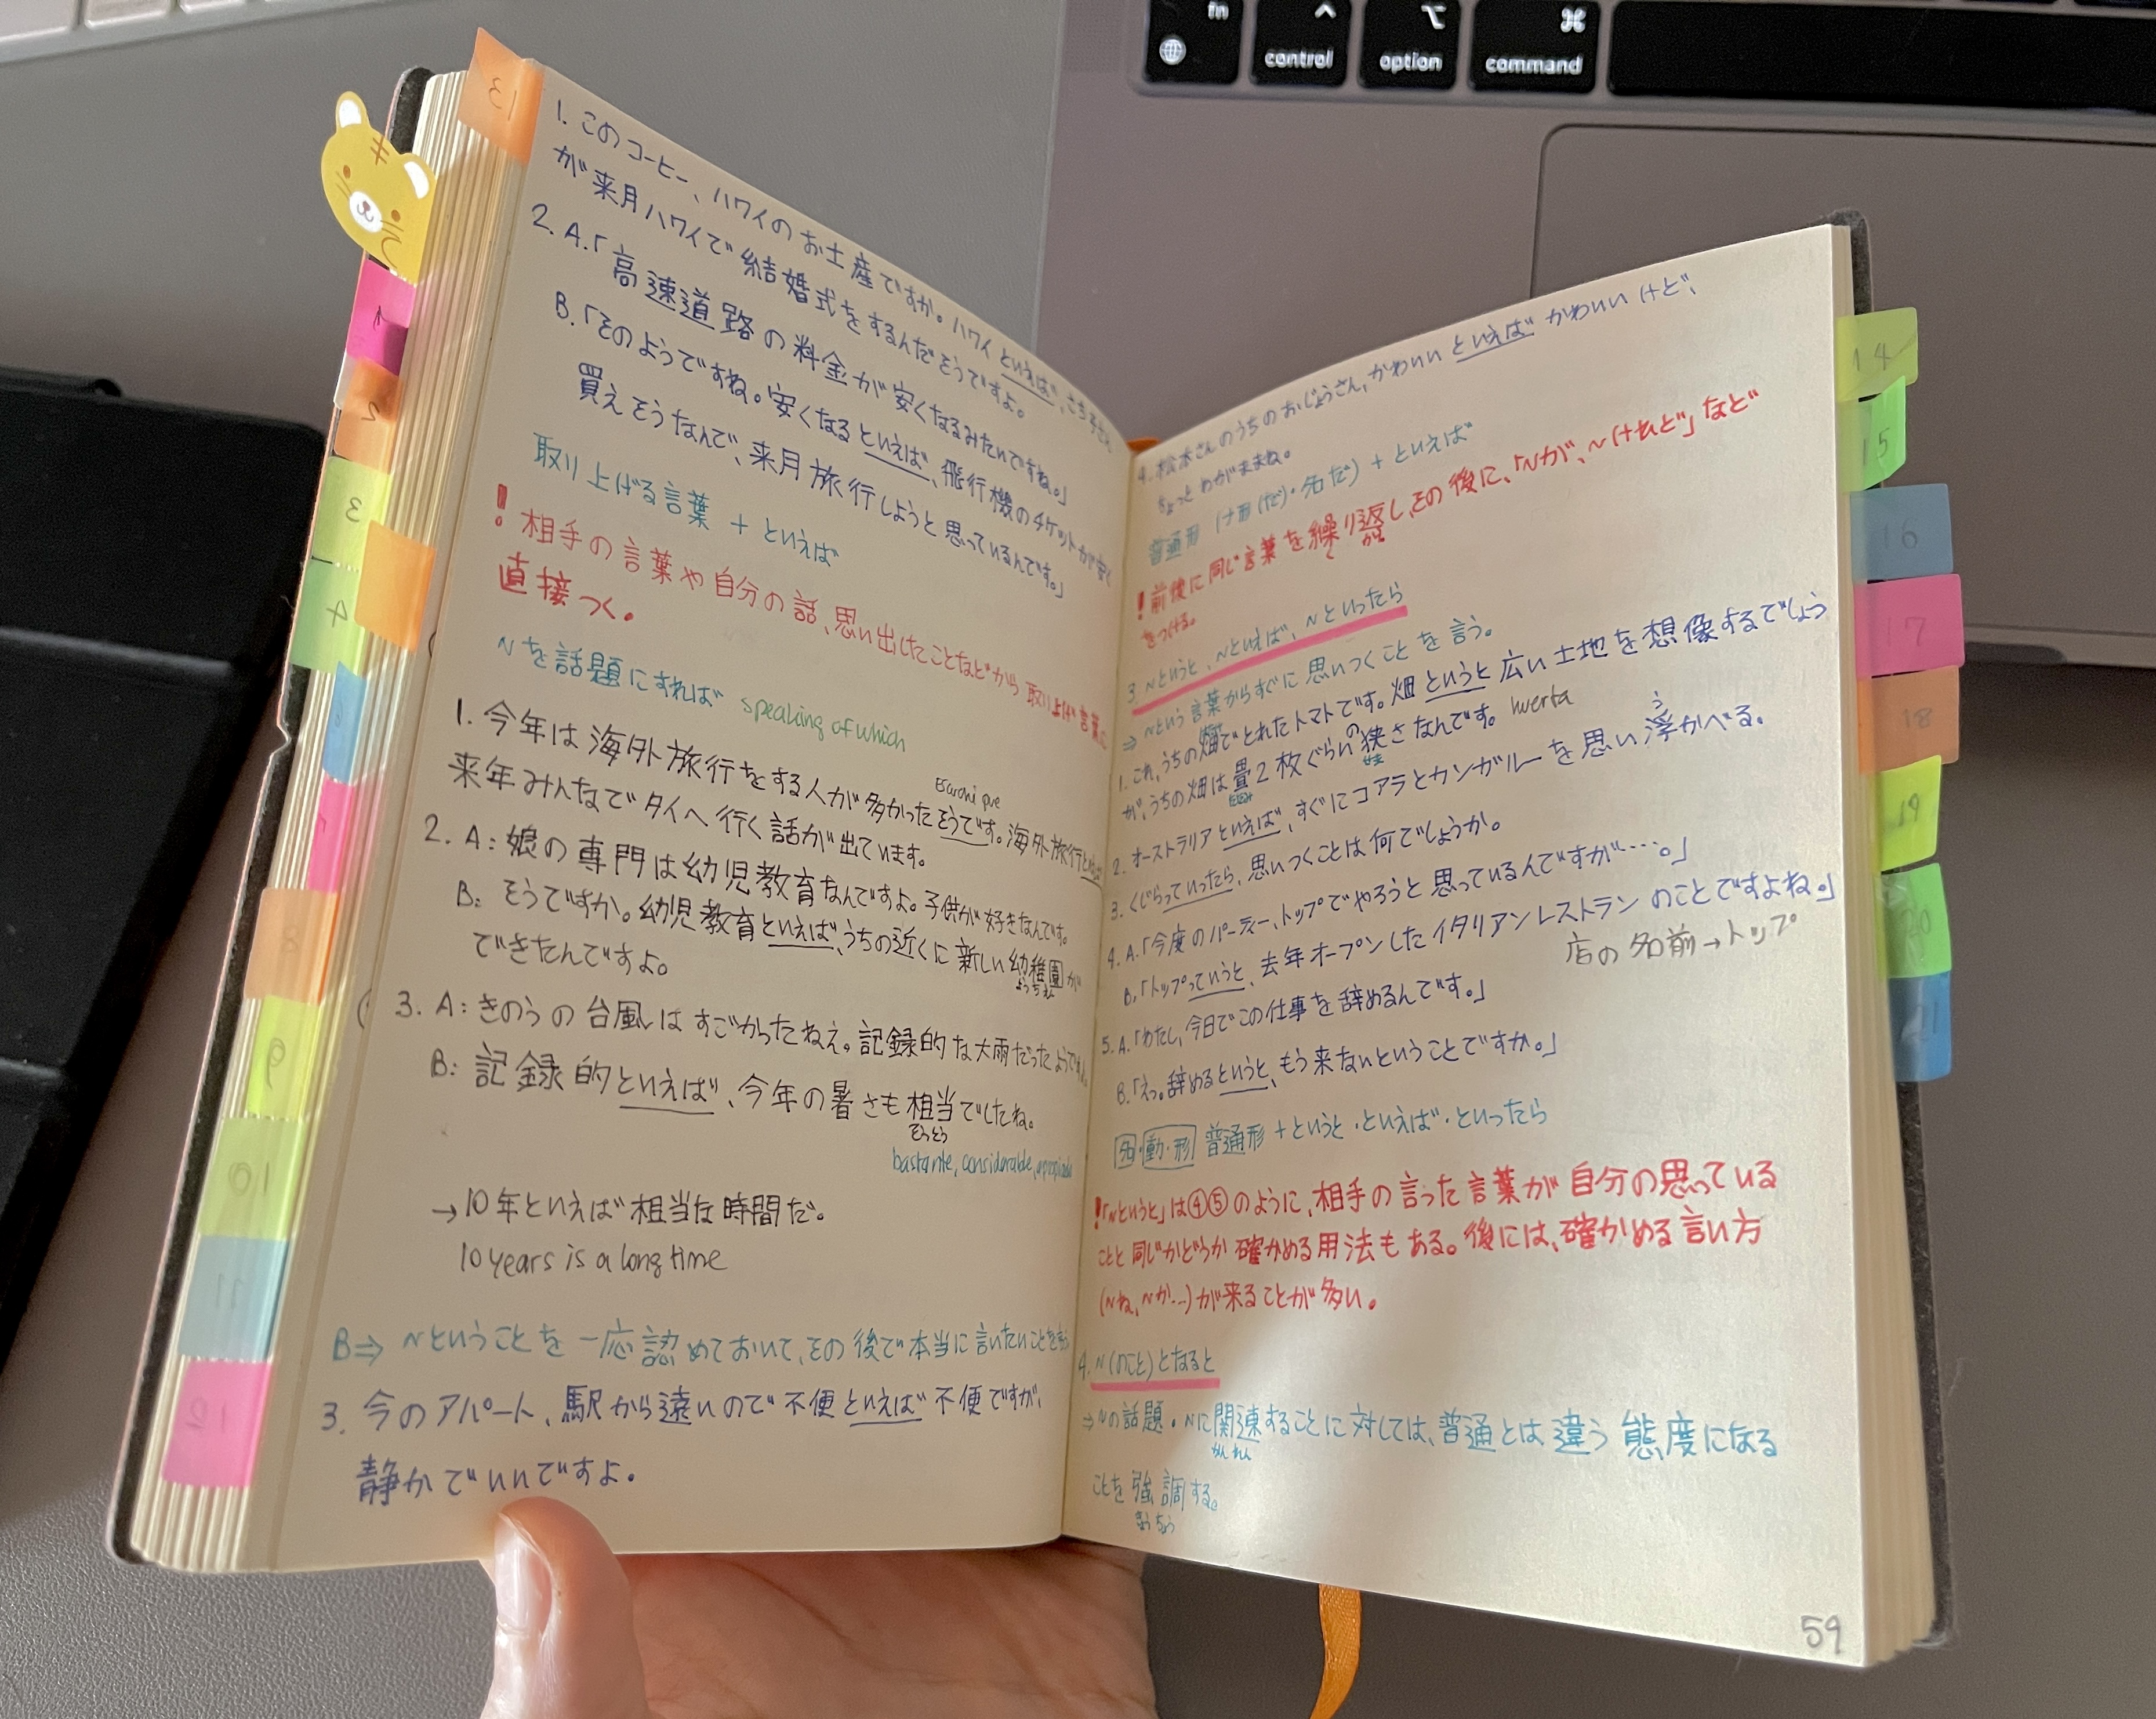 fn
control
option
command
⌘
13
1
2
3
4
8
9
10
11
12
1. このコーヒー、ハワイのお土産ですか。ハワイといえば、さち子さん
が来月ハワイで結婚式をするんだそうですよ。
2. A.「高速道路の料金が安くなるみたいですね。」
B.「そのようですね。安くなるといえば、飛行機のチケットが安く
買えそうなんで、来月旅行しようと思っているんです。」
取り上げる言葉 + といえば
! 相手の言葉や自分の話、思い出したことなどから取り上げ言葉に
直接つく。
~を話題にすれば speaking of which
1. 今年は海外旅行をする人が多かったそうです。海外旅行といえば
来年みんなでタイへ行く話が出ています。
2. A: 娘の専門は幼児教育なんですよ。子供が好きなんです。
B: そうですか。幼児教育といえば、うちの近くに新しい幼稚園が
ようちえん
できたんですよ。
3. A: きのうの台風はすごかったねえ。記録的な大雨だったようです
B: 記録的といえば、今年の暑さも相当でしたね。
そうとう
bastante, considerable, apropiado
→10年といえば相当な時間だ。
10 years is a long time
B⇒ ~ということを一応認めておいて、その後で本当に言いたいことを言う
3. 今のアパート、駅から遠いので不便といえば不便ですが、
静かでいいですよ。
4. 松本さんのうちのおじょうさん、かわいいといえばかわいいけど、
ちょっとわがままね。
普通形 (ナ形(だ)・名だ) + といえば
! 前後に同じ言葉を繰り返し、その後に、「~が、~けれど」など
く かえ
をつける。
3. ~というと、~といえば、~といったら
⇒ ~という言葉からすぐに思いつくことを言う。
1. これ、うちの畑でとれたトマトです。畑というと広い土地を想像するでしょう
が、うちの畑は畳2枚ぐらいの狭さなんです。 huerta
たたみ せま
2. オーストラリアといえば、すぐにコアラとカンガルーを思い浮かべる。
う
3. くじらっていったら、思いつくことは何でしょうか。
4. A.「今度のパーティー、トップでやろうと思っているんですが…。」
B.「トップっていうと、去年オープンしたイタリアンレストランのことですよね。」
店の名前→トップ
5. A.「わたし、今日でこの仕事を辞めるんです。」
B.「えっ。辞めるというと、もう来ないということですか。」
名・動・形 普通形 + というと・といえば・といったら
!「~というと」は④⑤のように、相手の言った言葉が自分の思っている
ことと同じかどうか確かめる用法もある。後には、確かめる言い方
(~ね、~か…)が来ることが多い。
4. ~(のこと)となると
⇒ ~の話題・~に関連することに対しては、普通とは違う態度になる
かんれん
ことを強調する。
きょうちょう
59
14
15
16
17
18
19
20
21